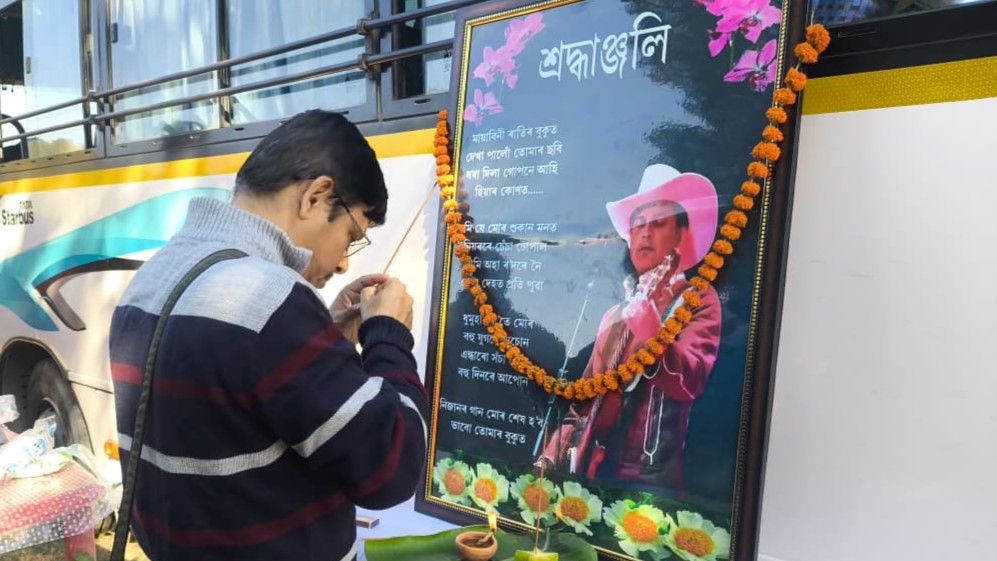 TATA
Starbus
শ্ৰদ্ধাঞ্জলি
মায়াবিনী ৰাতিৰ বুকুত
দেখা পালোঁ তোমাৰ ছবি
ধৰা দিলা গোপনে আহি
হিয়াৰ কোণত......
মি যে মোৰ শুকান মনত
নিয়ৰৰে চেঁচা টোপাল
মি অহা ৰ'দৰে নৈ
দেহত প্ৰতি পুৱা
ধুমুহা তে মোৰ
বহু যুগৰ চোন
এন্ধাৰো সঁচা
বহু দিনৰে আপোন
নিজানৰ গান মোৰ শেষ হ'ব
ভাবো তোমাৰ বুকুত